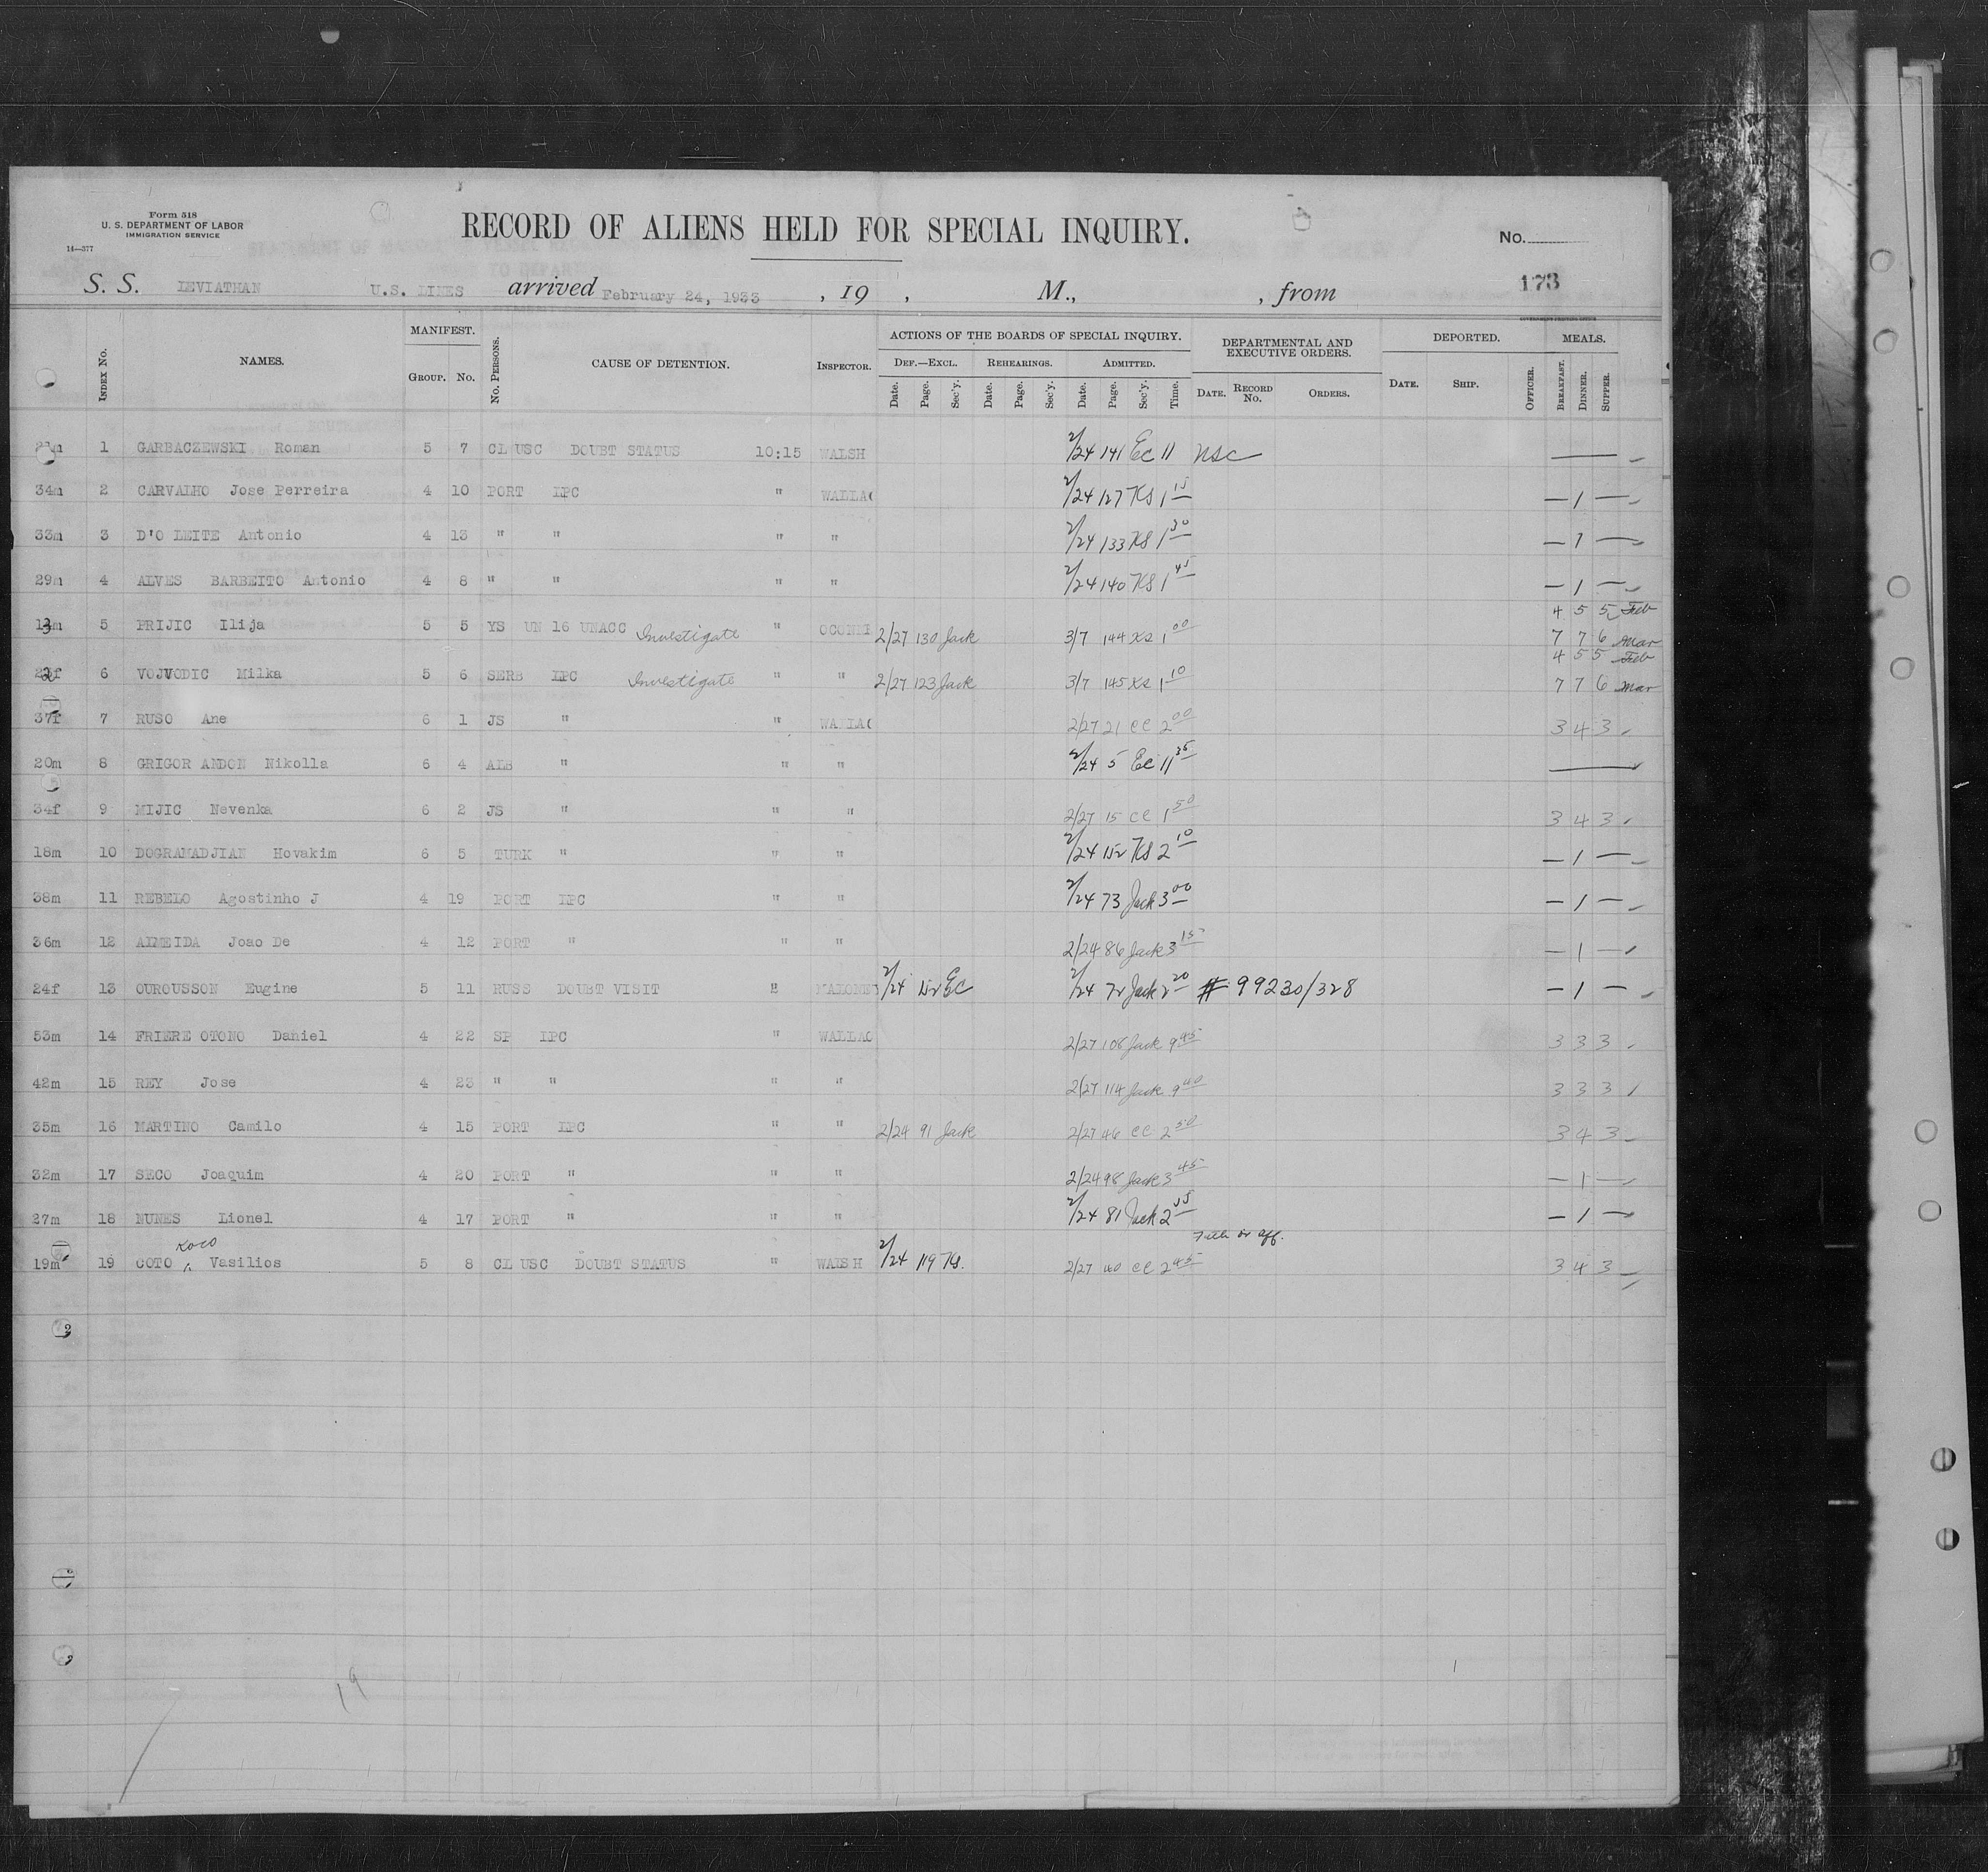 Form 518
U. S. DEPARTMENT OF LABOR
IMMIGRATION SERVICE
14—377
RECORD OF ALIENS HELD FOR SPECIAL INQUIRY.
No.
173
S. S. LEVIATHAN U.S. LINES arrived February 24, 1933 , 19 , M., , from
GOVERNMENT PRINTING OFFICE
INDEX NO. NAMES. MANIFEST. GROUP. NO. NO. PERSONS. CAUSE OF DETENTION. INSPECTOR. ACTIONS OF THE BOARDS OF SPECIAL INQUIRY. DEPARTMENTAL AND EXECUTIVE ORDERS. DEPORTED. MEALS.
DEF.—EXCL. REHEARINGS. ADMITTED.
Date. Page. Sec'y. Date. Page. Sec'y. Date. Page. Sec'y. Time. DATE. RECORD NO. ORDERS. DATE. SHIP. OFFICER. BREAKFAST. DINNER. SUPPER.
1 GARBACZEWSKI Roman 5 7 CL USC DOUBT STATUS 10:15 WALSH 2/24 141 EC 11 NSC
34m 2 CARVALHO Jose Perreira 4 10 PORT LPC " WALLAC 2/24 127 KS 1 15 — 1 —
33m 3 D'O LEITE Antonio 4 13 " " " " 2/24 133 KS 1 30 — 1 —
29m 4 ALVES BARBEITO Antonio 4 8 " " " " 2/24 140 KS 1 45 — 1 —
13m 5 PRIJIC Ilija 5 5 YS UN 16 UNACC Investigate " OCONNE 2/27 130 Jack 3/7 144 KS 1 00 4 5 5 Feb 7 7 6 Mar
6 VOJVODIC Milka 5 6 SERB LPC Investigate " " 2/27 123 Jack 3/7 145 KS 1 10 4 5 5 Feb 7 7 6 Mar
37f 7 RUSO Ane 6 1 JS " " WALLAC 2/27 21 CC 2 00 3 4 3
20m 8 GRIGOR ANDON Nikolla 6 4 ALB " " " 2/24 5 EC 11 35
34f 9 MIJIC Nevenka 6 2 JS " " " 2/27 15 CC 1 50 3 4 3
18m 10 DOGRAMADJIAN Hovakim 6 5 TURK " " " 2/24 152 KS 2 10 — 1 —
38m 11 REBELO Agostinho J 4 19 PORT LPC " " 2/24 73 Jack 3 00 — 1 —
36m 12 ALMEIDA Joao De 4 12 PORT " " " 2/24 86 Jack 3 15 — 1 —
24f 13 OUROUSSON Eugine 5 11 RUSS DOUBT VISIT " 2/24 152 EC 2/24 72 Jack 2 20 # 99230/328 — 1 —
53m 14 FRIERE OTONO Daniel 4 22 SP LPC " WALLAC 2/27 108 Jack 9 45 3 3 3
42m 15 REY Jose 4 23 " " " " 2/27 114 Jack 9 40 3 3 3
35m 16 MARTINO Camilo 4 15 PORT LPC " " 2/24 91 Jack 2/27 46 CC 2 50 3 4 3
32m 17 SECO Joaquim 4 20 PORT " " " 2/24 98 Jack 3 45 — 1 —
27m 18 NUNES Lionel 4 17 PORT " " " 2/24 81 Jack 2 55 — 1 —
Koco
19m 19 COTO Vasilios 5 8 CL USC DOUBT STATUS " WALSH 2/24 119 KS. 2/27 40 CC 2 45 3 4 3
19